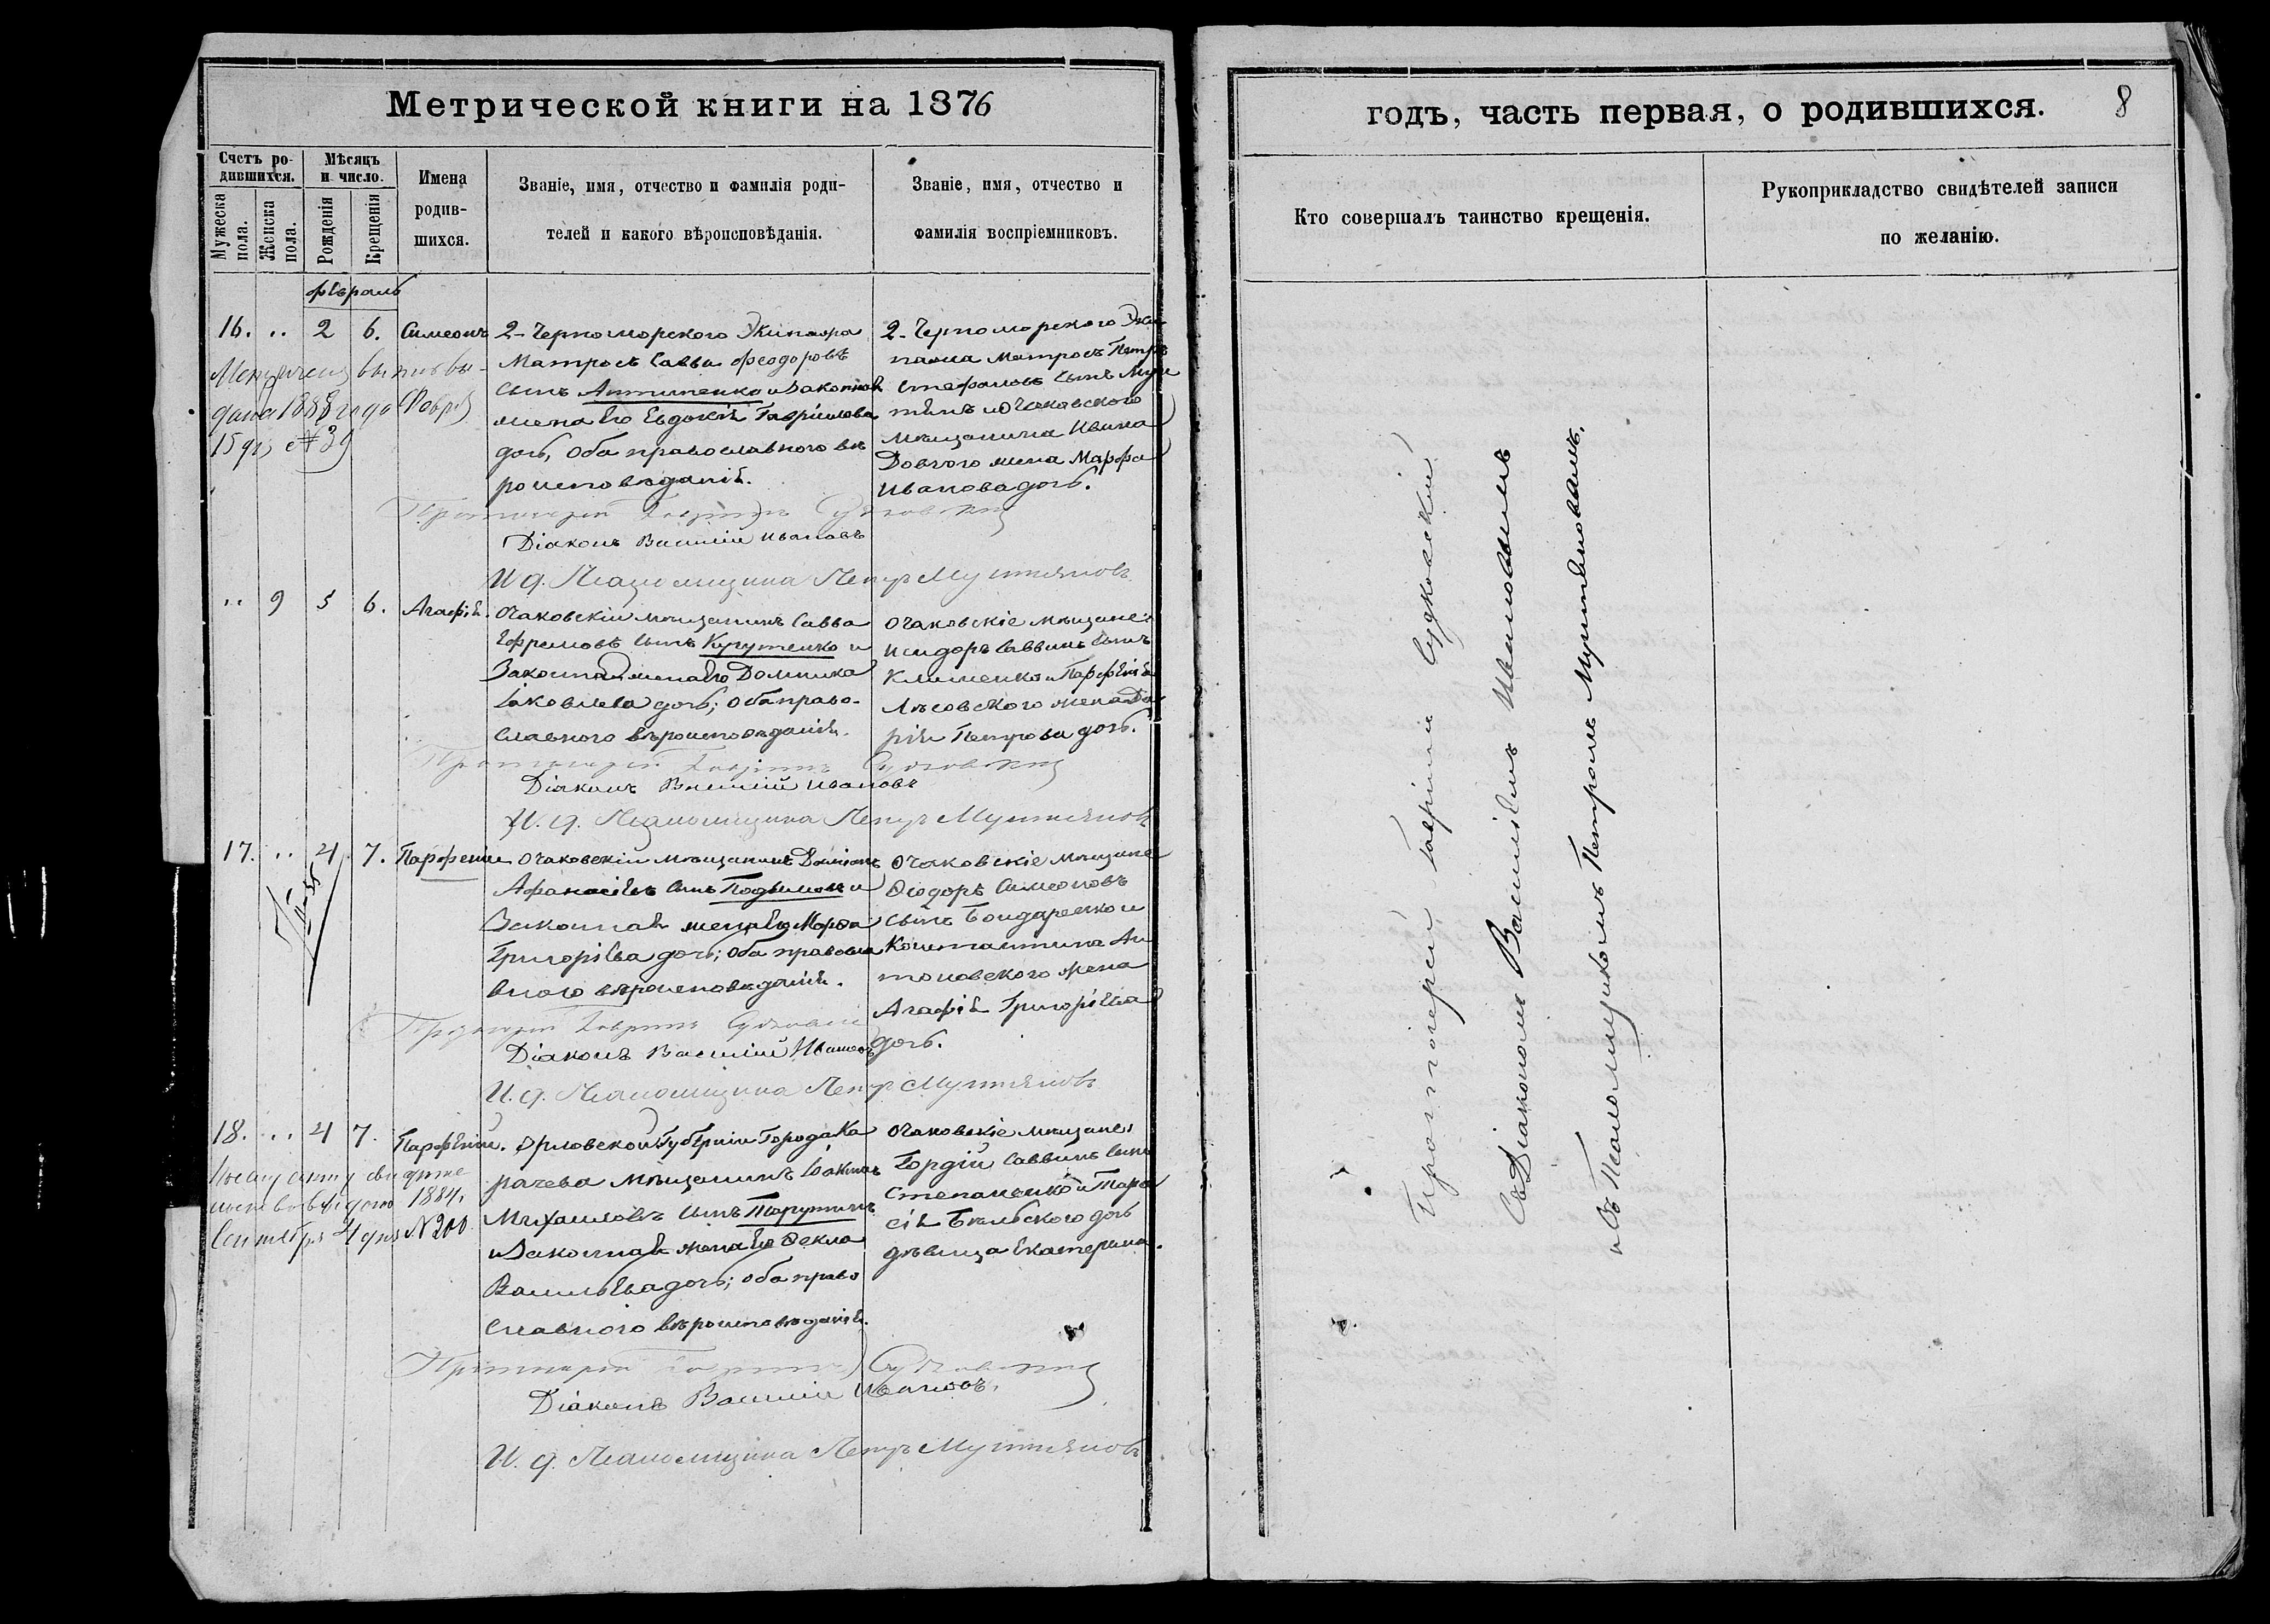 Метрической книги на 1876
Счетъ родившихся.
Мужеска пола.
Женска пола.
Мѣсяцъ и число.
Рожденія
Крещенія
Имена родившихся.
Званіе, имя, отчество и фамилія родителей и какого вѣроисповѣданія.
Званіе, имя, отчество и фамилія воспріемниковъ.
февраль
16. .. 2 6. Симеонъ
2-Черноморского Экипажа
Матросъ Савва Феодоровъ
сынъ Антипенко и законная
жена его Евдокія Гавріилова
дочь, оба православного вѣ
роисповѣданія.
2-Черноморского Эки
пажа Матросъ Петръ
Стефановъ сынъ
и Очаковского
мѣщанина Ивана
Довгого жена Марфа
Иванова дочь.
дана 1888 года Февр
15 дня № 39
Протоіерей Гавріилъ Судковскій
Діаконъ Василій Ивановъ
И. д. Псаломщика Петръ Мутьяновъ
.. 9 5 6. Агафія.
Очаковскій мѣщанинъ Савва
Ефремовъ сынъ Кучутенко и
Законная жена его Домника
Іаковлева дочь; оба право-
славного вѣроисповѣданія.
Очаковскіе мѣщане:
Исидоръ Саввинъ сынъ
Клименко и Парфенія
Лѣсовского жена Да
рія Петрова дочь.
Протоіерей Гавріилъ Судковскій
Діаконъ Василій Ивановъ
И. д. Псаломщика Петръ Мутьяновъ
17. .. 4 7. Парфеній
Очаковскій мѣщанинъ Даміанъ
Афанасіевъ сынъ и
Законная жена его Марфа
Григоріева дочь; оба правосла
вного вѣроисповѣданія.
Очаковскіе мѣщане
Ѳеодоръ Симеоновъ
сынъ Бондаренко и
Константина Ан
тоновского жена
Агафія Григоріева
дочь.
Протоіерей Гавріилъ Судковскій
Діаконъ Василій Ивановъ
И. д. Псаломщика Петръ Мутьяновъ
18. .. 4 7. Парфеній.
Орловской Губерніи Города Ка
рачева мѣщанинъ Іоакимъ
Михаиловъ сынъ Тарутинъ
и Законная жена его Ѳекла
Васильева дочь; оба право
славного вѣроисповѣданія.
Очаковскіе мѣщане:
Гордій Саввинъ сынъ
Степаненко и Тара
сія Бѣльского дочь
дѣвица Екатерина.
1884
Сентября 4 дня № 200
Протоіерей Гавріилъ Судковскій
Діаконъ Василій Ивановъ.
И. д. Псаломщика Петръ Мутьяновъ
годъ, часть первая, о родившихся.
8
Кто совершалъ таинство крещенія.
Рукоприкладство свидѣтелей записи по желанію.
Протоіерей Гавріилъ Судковскій
Съ Діакономъ Василіемъ Ивановымъ
и съ Псаломщикомъ Петромъ Мутьяновымъ.